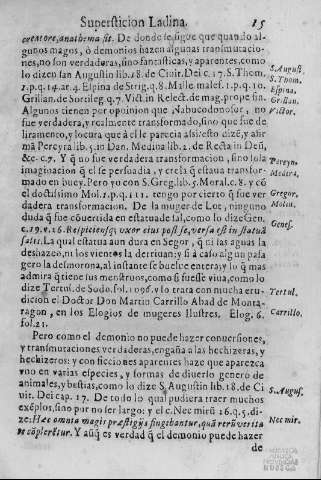 Supersticion Ladina. 15
creatore, anathema sit. De donde se sigue que quando al-
gunos magos, ò demonios hazen algunas tranmutacio-
nes, no son verdaderas, sino fantasticas, y aparentes, como
lo dizen san Augustin lib. 18. de Ciuit. Dei c. 17. S. Thom.
1. p. q. 14. ar. 4. Elpina de Strig. q. 8. Malle. malef. 1. p. q. 10.
Grillan. de Sortileg. q. 7. Vict. in Relect. de mag. prope fin.
Algunos tienen por opinion que Nabucodonosor, no
fue verdadera, y realmente transformado, sino que fue de-
liramento, y locura que à el le parecia assi: esto dizè, y ahir
ma Pereyra lib. 5. in Dan. Medina lib. 2. de Recta in Deũ,
&c. c. 7. Y q̃ no fue verdadera transformacion, sino sola
imaginacion q̃ el se persuadia, y creìa q̃ estaua transfor-
mado en buey. Pero yo con S. Greg. lib. 5. Moral. c. 8. y cõ
el doctissimo Mol. 1. p. q. 111. tengo por cierto q̃ fue ver-
dadera transformacion. De la muger de Lot, ninguno
duda q̃ fue cõuertida en estatua de sal, como lo dize Gen.
c. 19. v. 26. Respiciensq; vxor eius post se, versa est in statuã
salis. La qual estatua aun dura en Segor, q̃ ni las aguas la
deshazè, ni los vientos la derriuan; y si à caso algun passa
gero la desmorona, al instante se buelue entera; y lo q̃ mas
admira q̃ tiene sus menstruos, como si fuesse viua, como lo
dize Tertul. de Sodo. fol. 1096. y lo trata con mucha eru-
dicion el Doctor Don Martin Carrillo Abad de Monta-
ragon, en los Elogios de mugeres Ilustres. Elog. 6.
fol. 21.
Pero como el demonio no puede hazer conuersiones,
y transmutaciones verdaderas, engaña a las hechizeras, y
hechizeros: y con ficciones aparentes haze que aparezca
vno en varias especies, y formas de diuerso genero de
animales, y bestias, como lo dize S. Augustin lib. 18. de Ci
uit. Dei cap. 17. De todo lo qual pudiera traer muchos
exẽplos, sino por no ser largo: y el c. Nec mirũ 26. q. 5. di-
ze: Hæc omnia magis præstigijs fingebantur, quã rerũ verita
te cõplerẽtur. Y aũq̃ es verdad q̃ el demonio puede hazer
de
S. August.
S. Thom.
Espina.
Grillan.
Victor.
Pereyn.
Medina.
Gregor.
Molin.
Genes.
Tertul.
Carrillo.
S. Augus.
Nec mir.